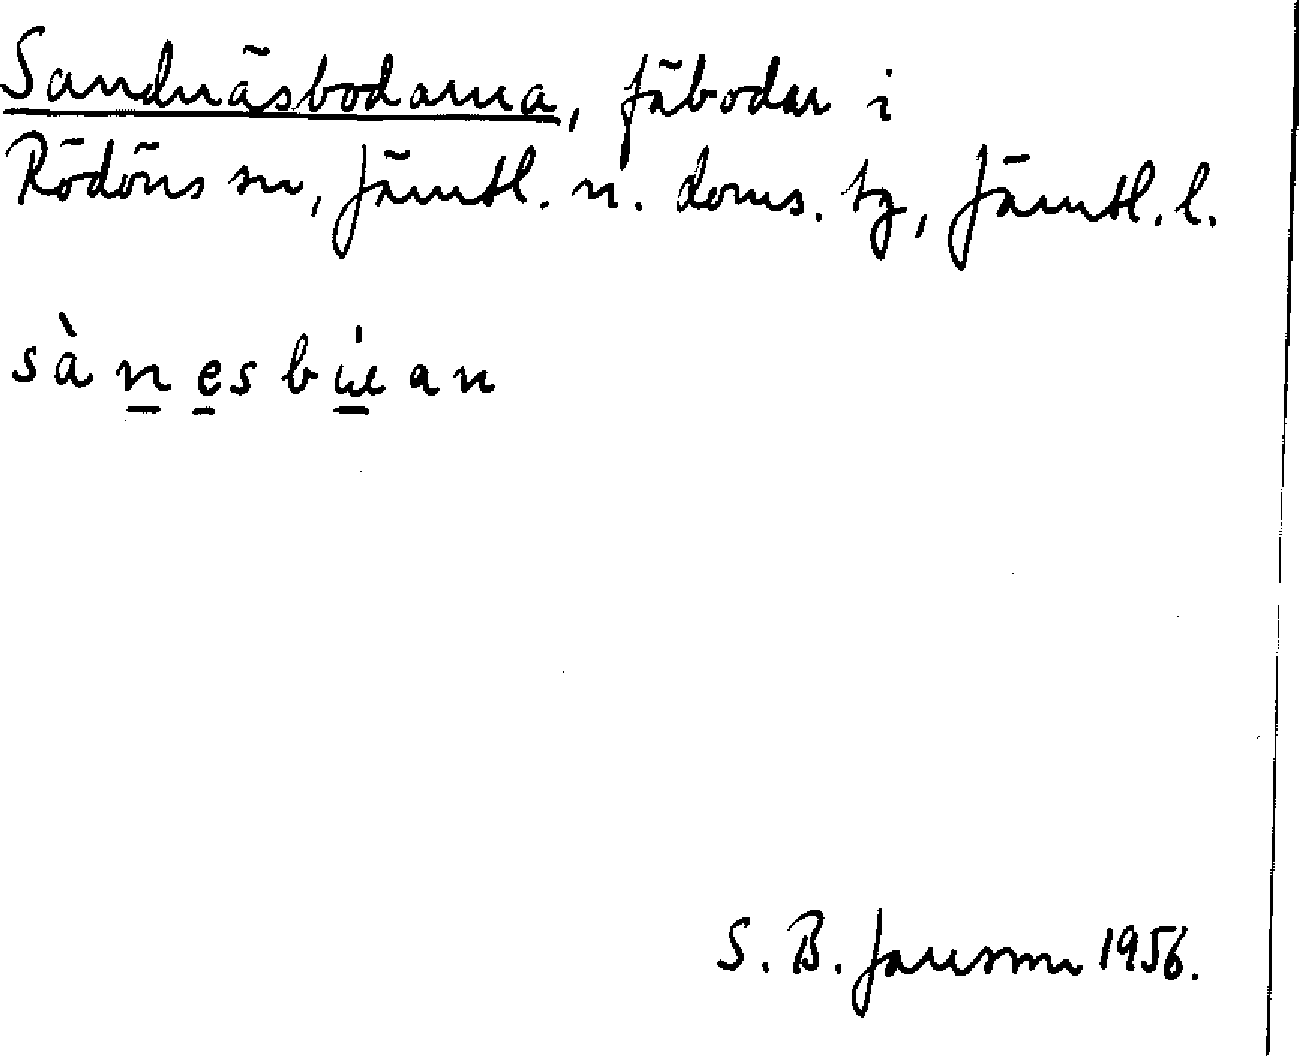 Sandnäsbodarna, fäbodar i
Rödöns sn, Jämtl. n. doms. tg, Jämtl. l.
sànesbu̍ean
S. B. Jansson 1956.